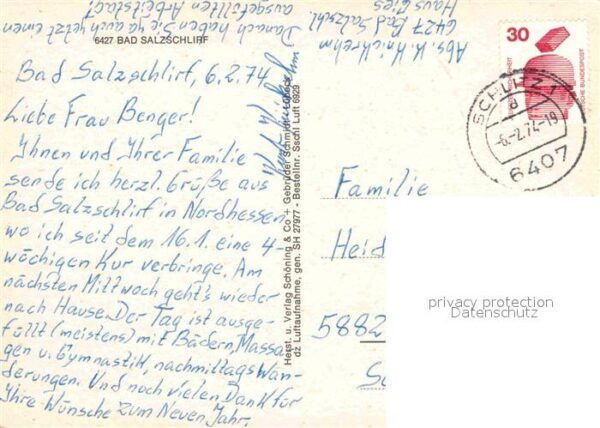 ausgefüllten Arbeitstag!
Danach haben Sie ja auch jetzt einen
6427 BAD SALZSCHLIRF
Bad Salzschlirf, 6.2.74
Liebe Frau Benger!
Ihnen und Ihrer Familie
sende ich herzl. Grüße aus
Bad Salzschlirf in Nordhessen
wo ich seit dem 16.1. eine 4-
wöchigen Kur verbringe. Am
nächsten Mittwoch geht's wieder
nach Hause. Der Tag ist ausge-
füllt (meistens) mit Bädern, Massa-
gen u. Gymnastik, nachmittags Wan-
derungen. Und noch vielen Dank für
Ihre Wünsche zum Neuen Jahr.
Herst. u. Verlag Schöning & Co + Gebrüder Schmidt · Lübeck
dz Luftaufnahme, gen. SH 27977 - Bestellnr. Sschl Luft 6929
Abs. K.
6427 Bad Salzschl.
Haus
30
DEUTSCHE BUNDESPOST
SCHLITZ 1
d
-6.-2.74-19
6407
Familie
Heid
5882
privacy protection
Datenschutz